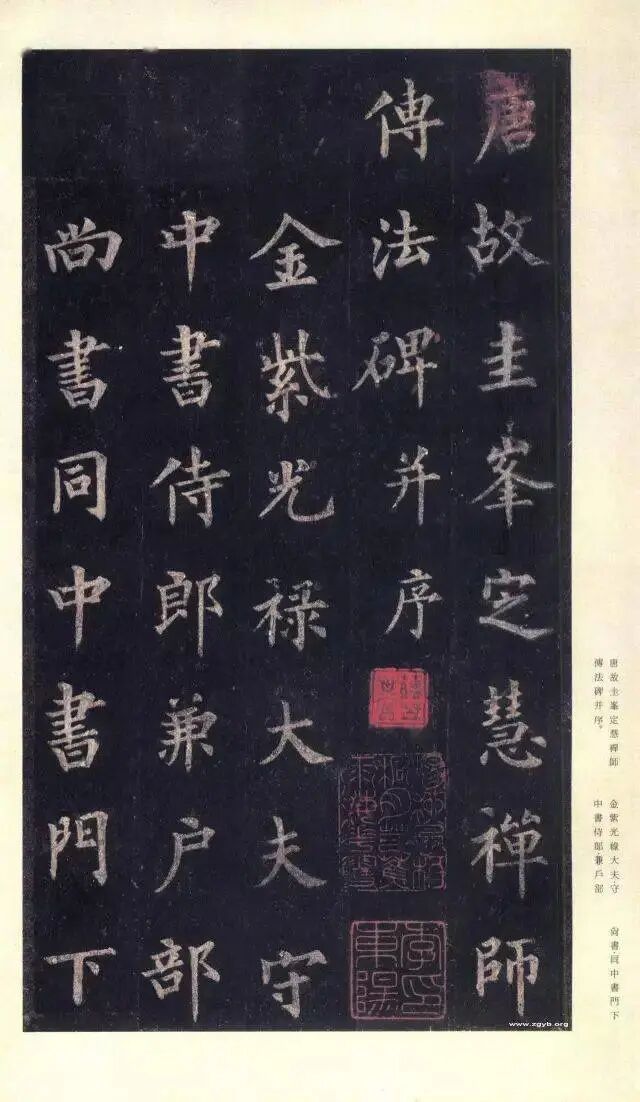 唐故圭峯定慧禪師
傳法碑并序
金紫光禄大夫守
中書侍郎兼户部
尚書同中書門下
唐故圭峯定慧禪師
傳法碑并序。
金紫光祿大夫守
中書侍郎兼戶部
尚書同中書門下
www.zgyb.org